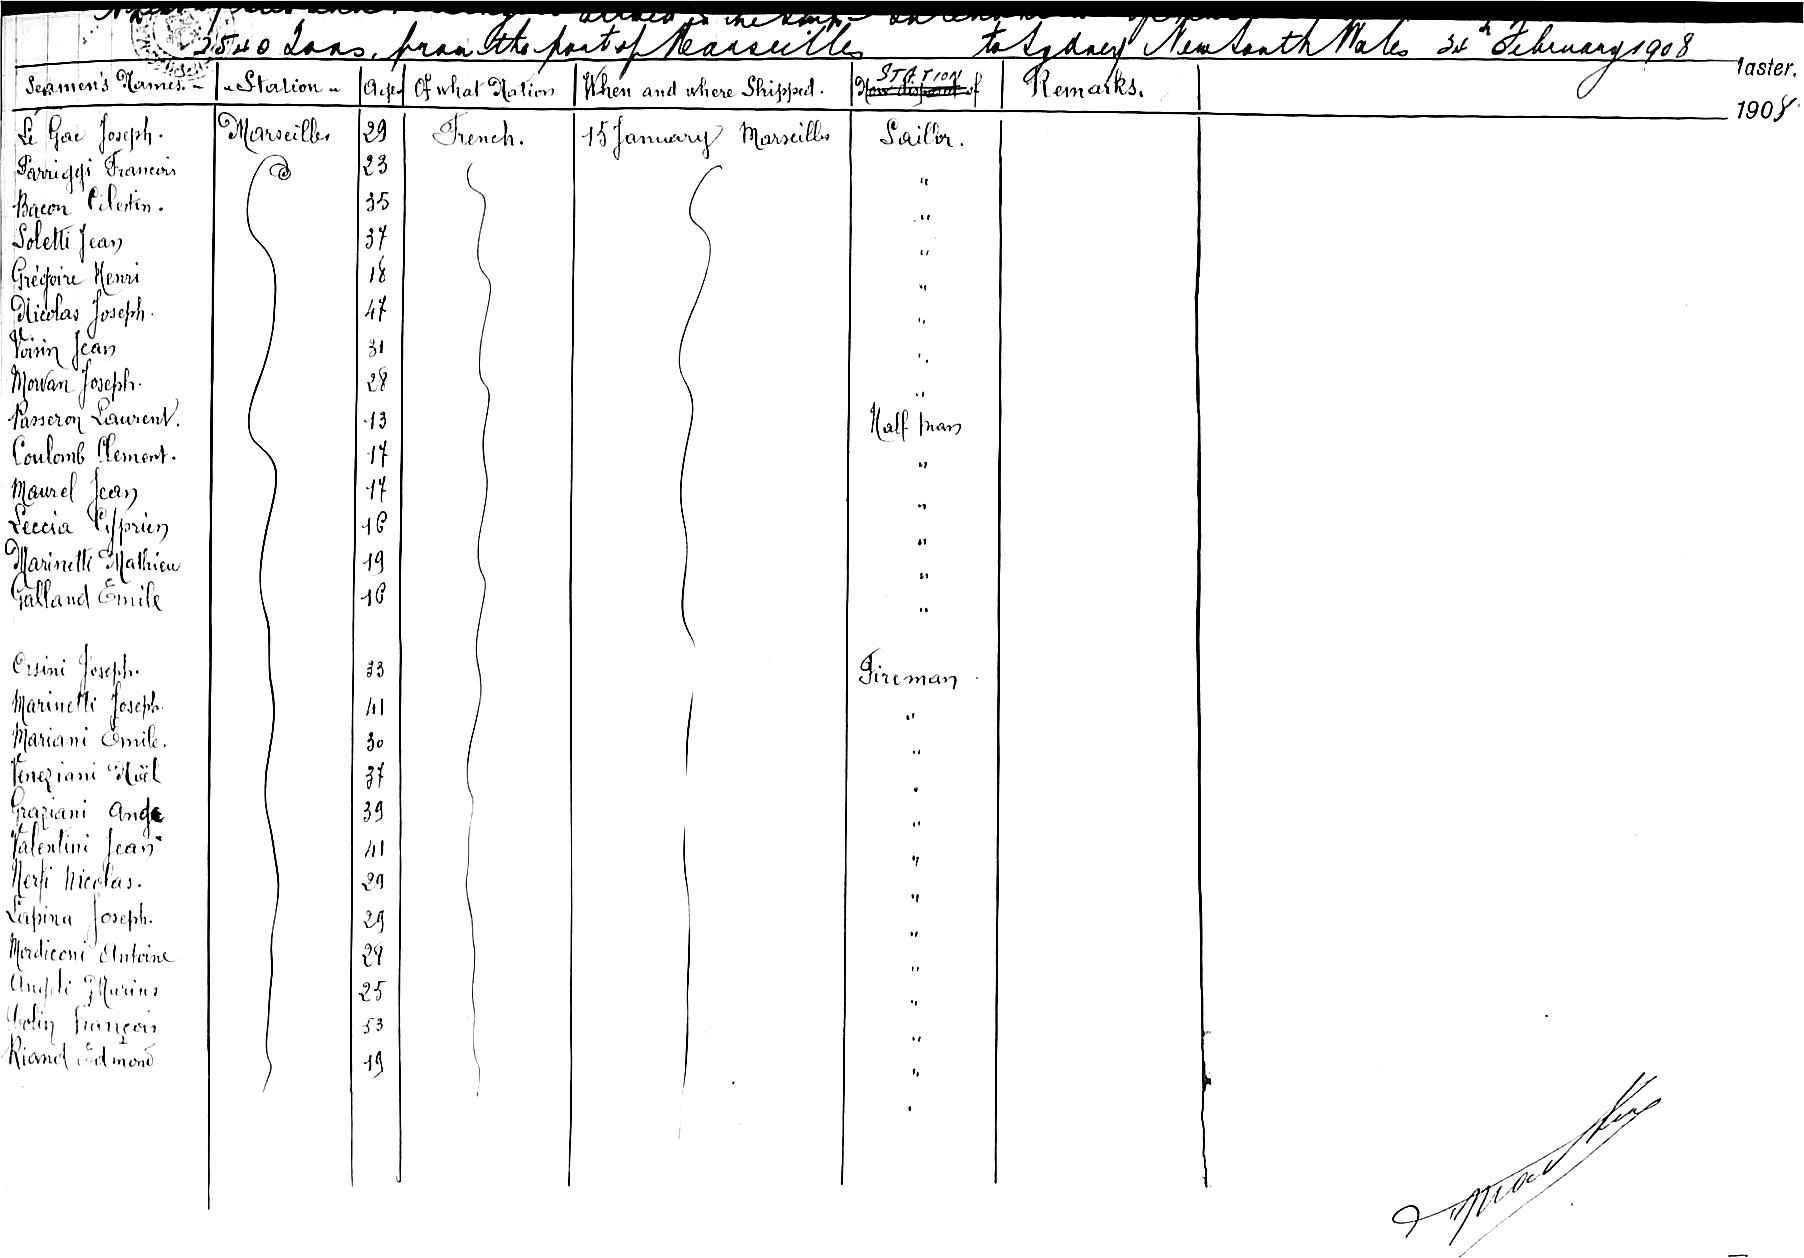 in the
2540 Tons, from the port of Marseilles to Sydney New South Wales 24th February 1908
Master.
Seamen's Names. Station Age Of what Nation When and where Shipped. STATION How disposed of Remarks.
1908
Le Gac Joseph. Marseilles 29 French. 15 January Marseilles Sailor.
Parriggi Francois 23 "
Bacon Célestin. 35 "
Soletti Jean 37 "
Grégoire Henri 18 "
Nicolas Joseph. 47 "
Voisin Jean 31 "
Morvan Joseph. 28 "
Passeron Laurent. 13 Half man
Coulomb Clement. 17 "
Maurel Jean 17 "
Leccia Cyprien 16 "
Marinetti Mathieu 19 "
Galland Emile 16 "
Orsini Joseph. 33 Fireman
Marinetti Joseph. 41 "
Mariani Emile. 30 "
Veneziani Noël 37 "
Graziani Ange 39 "
Valentini Jean 41 "
Nicolas. 29 "
Lapina Joseph. 29 "
Mordiconi Antoine 28 "
Angeli Marius 25 "
Colin François 53 "
Riand Edmond 19 "
"